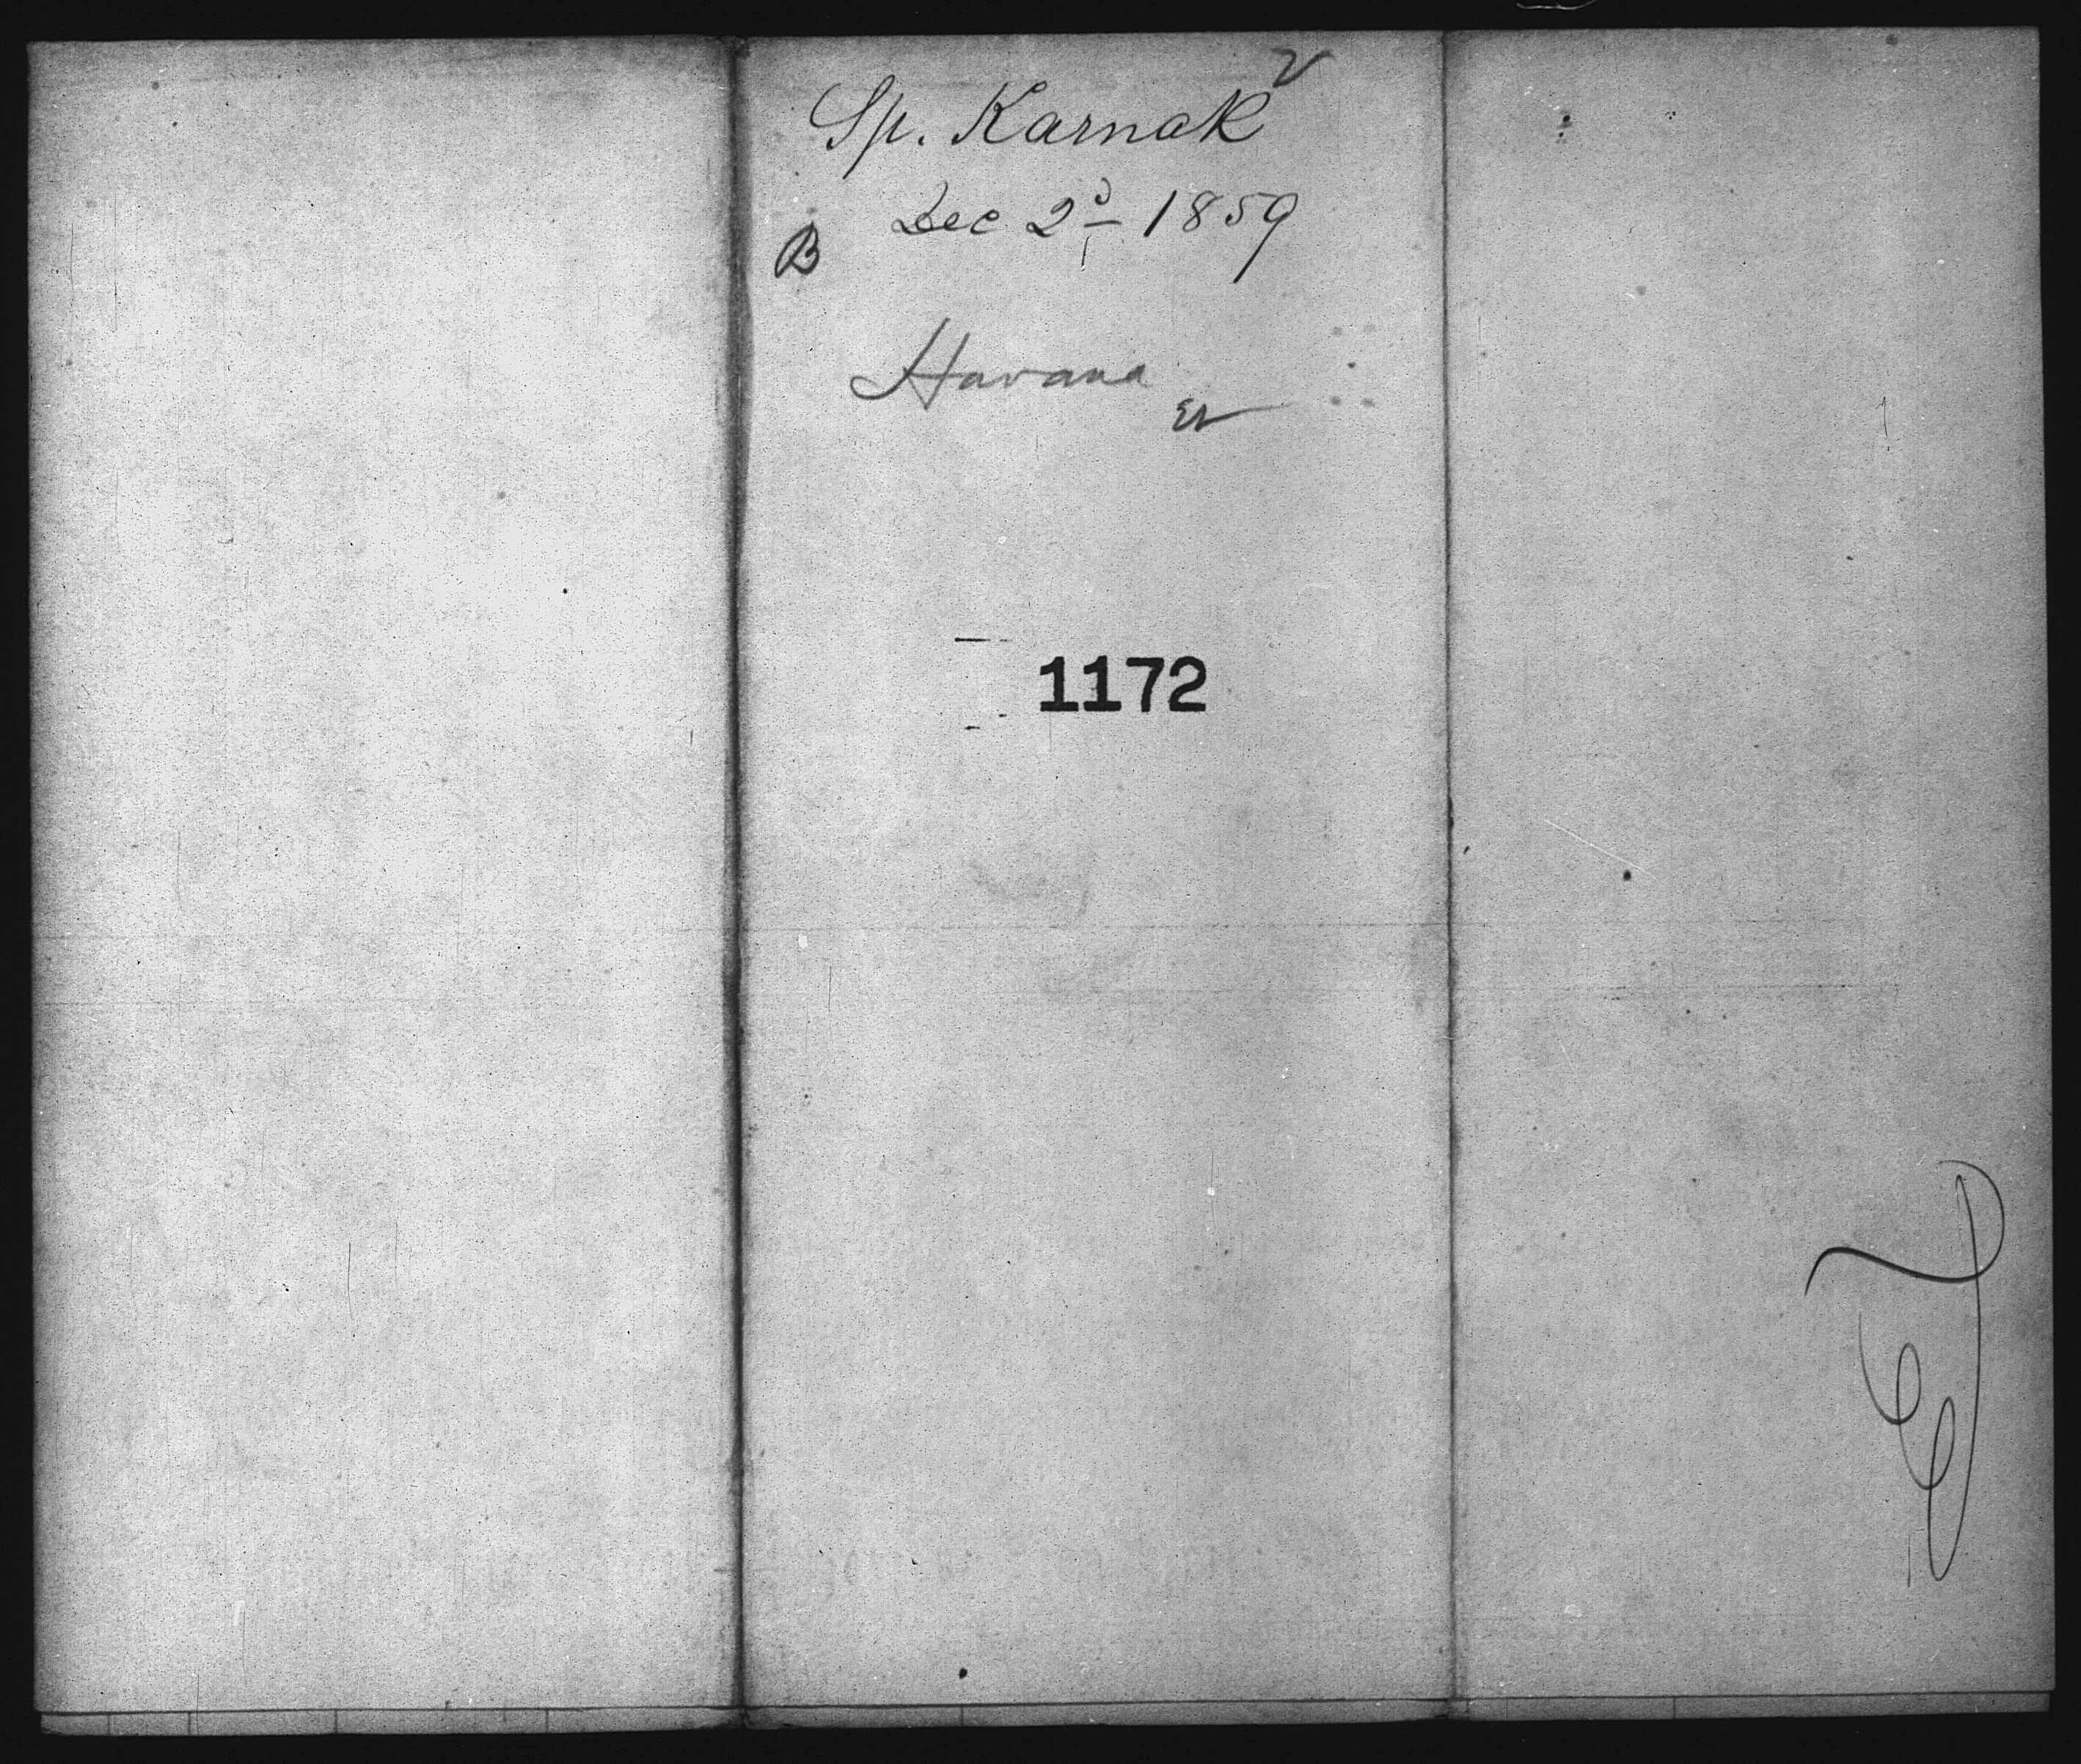 Sp. Karnak
Dec 2d 1859
B
Havana
1172